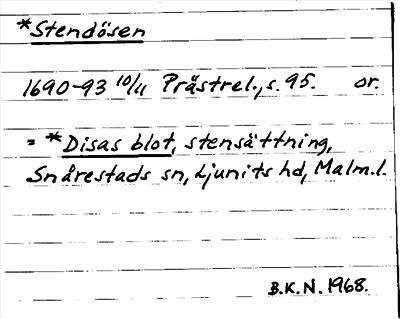 *Stendösen
1690-93 10/11 Prästrel., s. 95. or.
= *Disas blot, stensättning,
Snårestads sn, Ljunits hd, Malm.l.
B.K.N. 1968.